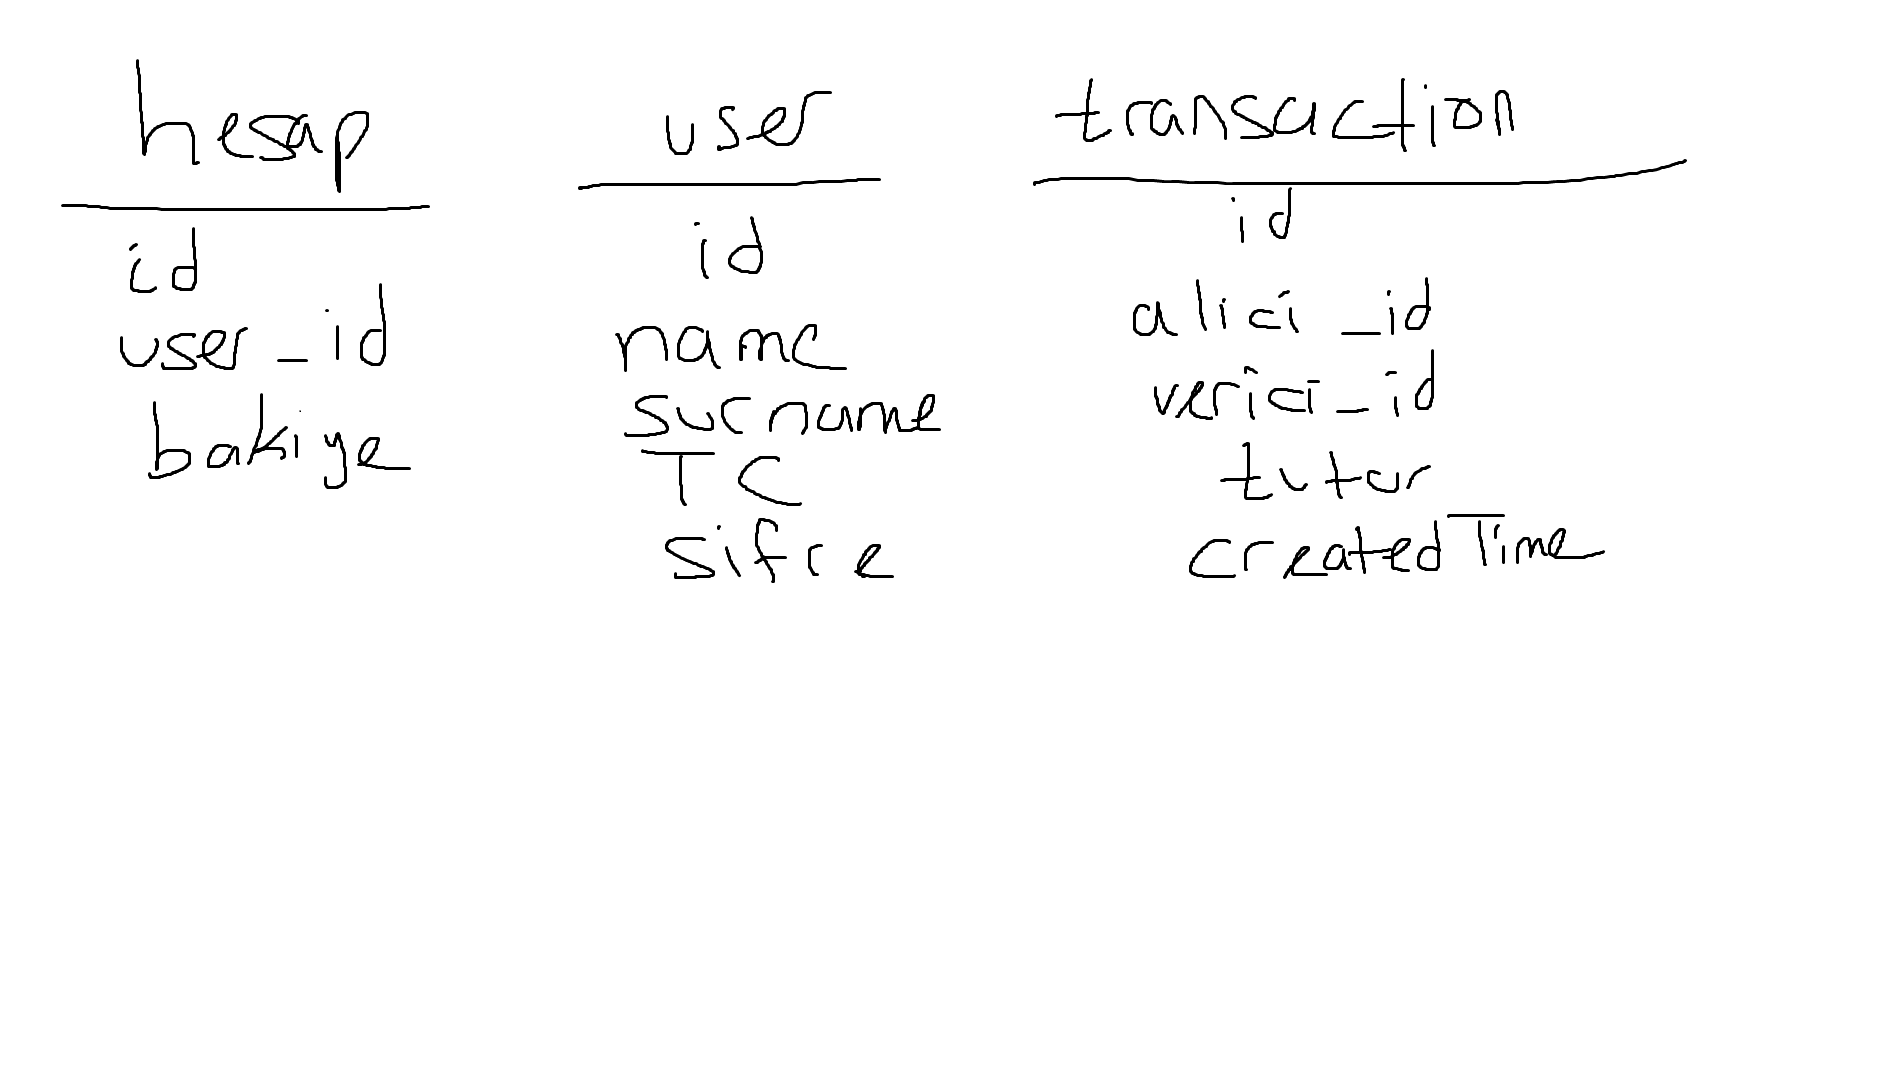 hesap
id
user_id
bakiye
user
id
name
surname
TC
sifre
transaction
id
alici_id
verici_id
tutar
createdTime